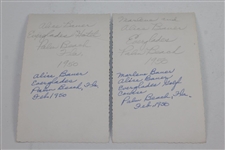 Alice Bauer
Everglades Golf
Palm Beach
Fla
1950
Alice Bauer
Everglades
Palm Beach, Fla.
Feb 1950
Marlene and
Alice Bauer
Everglades
Palm Beach
1950
Marlene Bauer
Alice Bauer
Everglades Golf
Palm Beach, Fla.
Feb 1950